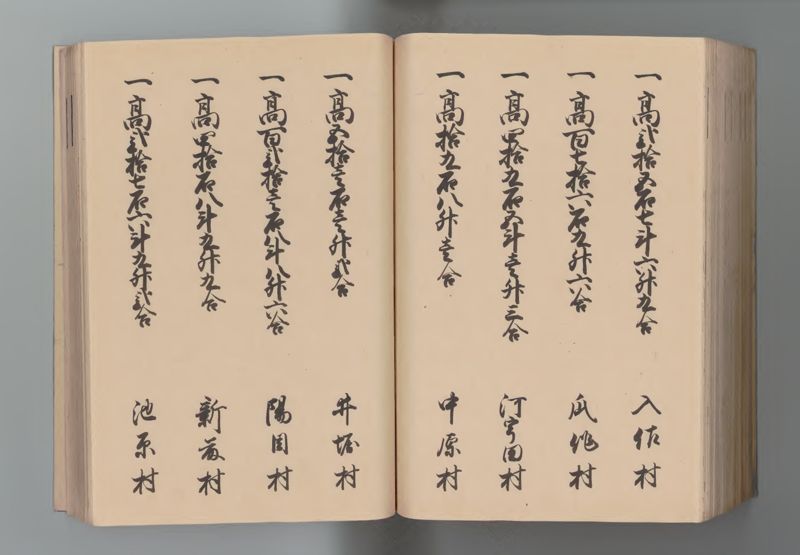 一高弐拾五石七斗六升九合　入佐村
一高百七拾六石九升六合　瓜作村
一高四拾九石五斗壱升三合　河宇田村
一高拾九石八升壱合　中原村
一高五拾壱石壱升弐合　井堀村
一高百弐拾壱石八斗八升六合　陽目村
一高四拾石八斗九升九合　新藪村
一高弐拾七石六斗九升弐合　池原村